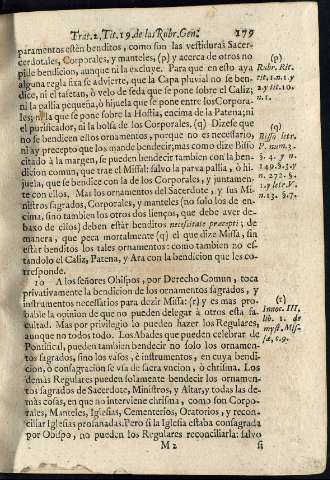 Trat. 2. Tit. 19. de las Rubr. Gen. 179
paramentos estèn benditos, como son las vestiduras Sacer-
cerdotales, Corporales, y manteles, (p) y acerca de otros no
pide bendicion, aunque ni la excluye. Para que en esto aya
alguna regla fixa se advierte, que la Capa pluvial no se ben-
dice, ni el tafetan, ò velo de seda que se pone sobre el Caliz;
ni la pallia pequeña, ò hijuela que se pone entre los Corpora-
les, ni la que se pone sobre la Hostia, encima de la Patena; ni
el purificador, ni la bolsa de los Corporales, (q) Dizese que
no se bendicen ellos ornamentos, porque no es necessario,
ni ay precepto que los mande bendecir; mas como dize Bisso
citado à la margen, se pueden bendecir tambien con la ben-
dicion comun, que trae el Missal: salvo la parva pallia, ò hi-
juela, que se bendice con la de los Corporales, y juntamen-
te con ellos. Mas los ornamentos del Sacerdote, y sus Mi-
nistros sagrados, Corporales, y manteles (no solo los de en-
cima, sino tambien los otros dos lienços, que debe aver de-
baxo de ellos) deben estàr benditos necessitate præcepti; de
manera, que peca mortalmente (q) el que dize Missa, sin
estàr benditos los tales ornamentos: como tambien no es-
tandolo el Caliz, Patena, y Ara con la bendicion que les co-
rresponde.
10 A los señores Obispos, por Derecho Comun, toca
privativamente la bendicion de los ornamentos sagrados, y
instrumentos necessarios para dezir Missa: (r) y es mas pro-
bable la opinion de que no pueden delegar à otros esta fa-
cultad. Mas por privilegio lo pueden hazer los Regulares,
aunque no todos todo. Los Abades que pueden celebrar de
Pontifical, pueden tambien bendecir no solo los ornamen-
tos sagrados, sino los vasos, è instrumentos, en cuya bendi-
cion, ò consagracion se vsa de sacra vncion, ò chrisma. Los
demàs Regulares pueden solamente bendecir los ornamen-
tos sagrados de Sacerdote, Ministros, y Altar, y todas las de-
màs cosas, en que no interviene chrisma, como son Corpo-
rales, Manteles, Iglesias, Cementerios, Oratorios, y recon-
ciliar Iglesias profanadas. Pero si la Iglesia estaba consagrada
por Obispo, no pueden los Regulares reconciliarla: salvo
M 2 si
(p)
Rubr. Rit.
tit. 1. n. 1. y
2. y tit. 10.
n. 1.
(q)
Bisso letr.
P. num. 3.
§. 4. y n.
149. §. 3. y
n. 272. §.
1. y letr. V.
n. 13. §. 7.
(r)
Innoc. III.
lib. 1. de
myst. Mis-
sæ, c. 9.